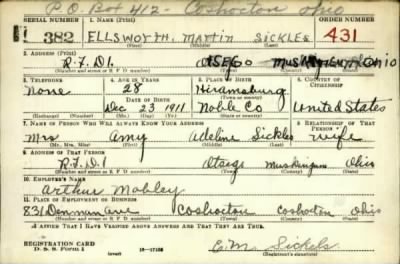 P.O. Box 412- Coshocton Ohio
SERIAL NUMBER 1. NAME (Print) ORDER NUMBER
382 ELLSWORTH. MARTIN SICKLES 431
(First) (Middle) (Last)
2. ADDRESS (Print)
R.F.D1. OTSEGO MUSKINGUM OHIO
(Number and street or R. F. D. number) (Town) (County) (State)
3. TELEPHONE 4. AGE IN YEARS 5. PLACE OF BIRTH 6. COUNTRY OF CITIZENSHIP
None 28 Hiramsburg
DATE OF BIRTH (Town or county)
Dec 23 1911 Noble Co United States
(Mo.) (Day) (Yr.) (State or country)
7. NAME OF PERSON WHO WILL ALWAYS KNOW YOUR ADDRESS 8. RELATIONSHIP OF THAT PERSON
Mrs Amy Adeline Sickles wife
(Mr., Mrs., Miss) (First) (Middle) (Last)
9. ADDRESS OF THAT PERSON
R.F.D.1 Otsego Muskingum Ohio
(Number and street or R. F. D. number) (Town) (County) (State)
10. EMPLOYER'S NAME
Arthur Mobley
11. PLACE OF EMPLOYMENT OR BUSINESS
831 Denman ave Coshocton Coshocton Ohio
(Number and street or R. F. D. number) (Town) (County) (State)
I AFFIRM THAT I HAVE VERIFIED ABOVE ANSWERS AND THAT THEY ARE TRUE.
REGISTRATION CARD
D. S. S. Form 1 (over) E.M. Sickels
(Registrant's signature)